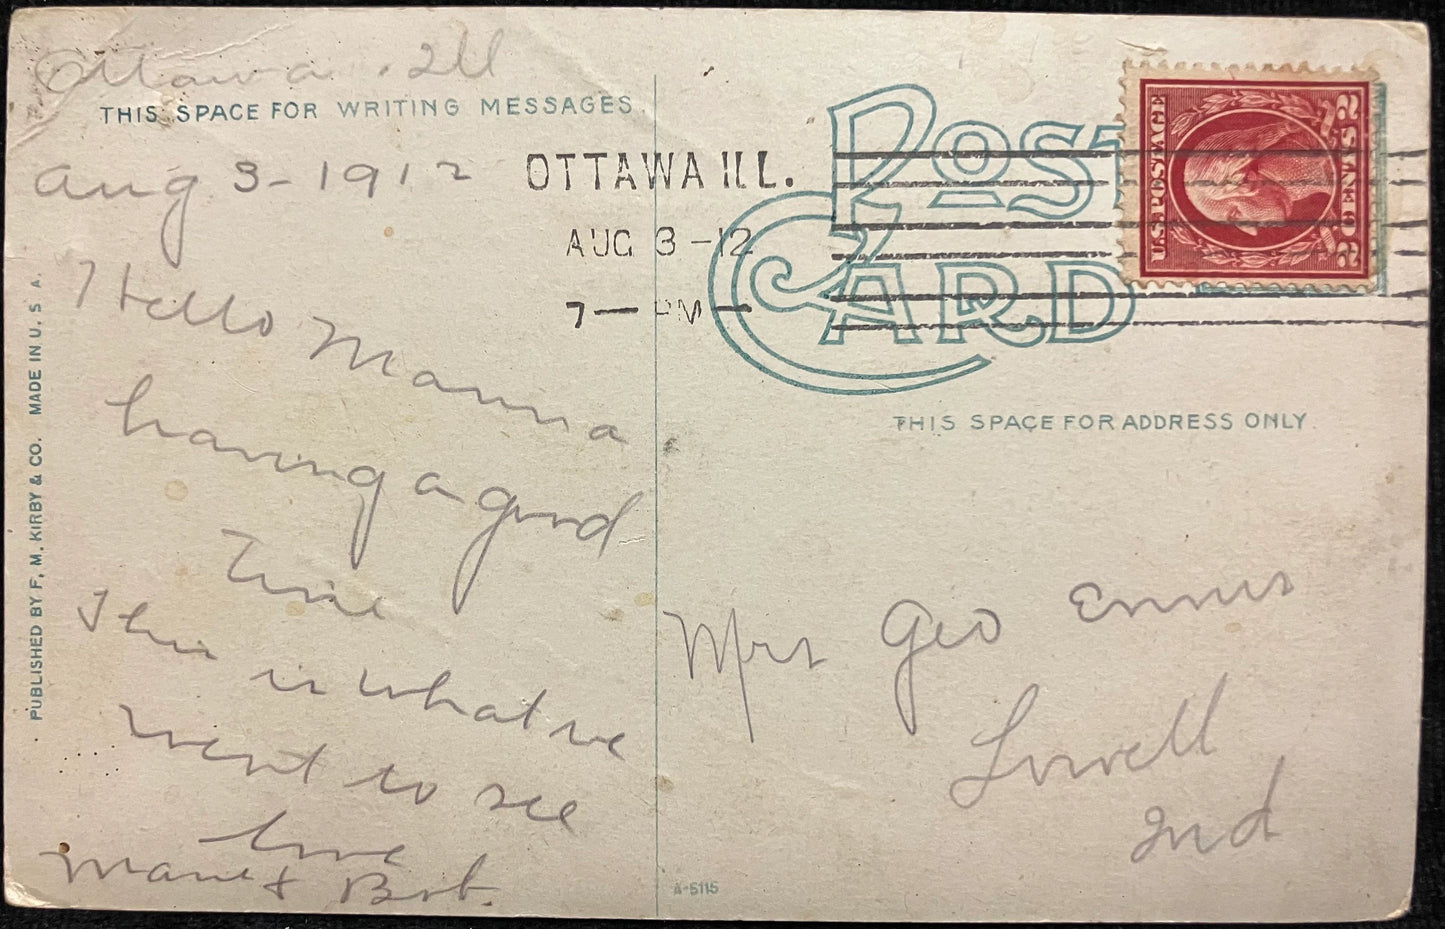 Ottawa, Ill
THIS SPACE FOR WRITING MESSAGES
Aug 3-1912
Hello Mamma.
having a good
time
This is what we
went to see
love
Marie & Bob.
PUBLISHED BY F. M. KIRBY & CO. MADE IN U. S. A.
OTTAWA ILL.
AUG 3-12
7— PM —
POST
CARD
U.S. POSTAGE
2 CENTS 2
THIS SPACE FOR ADDRESS ONLY.
Mrs Geo Ennis
Lowell
Ind
A-5115